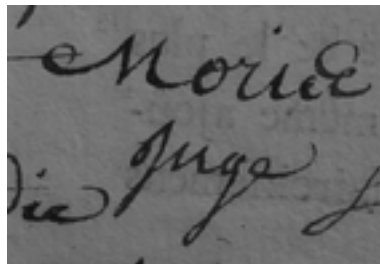 Morice
Juge